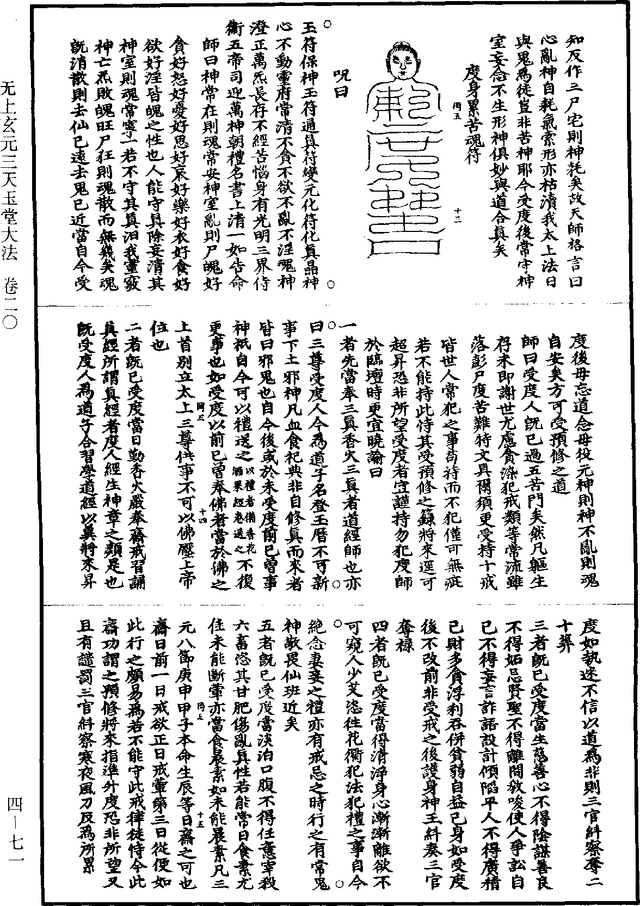 知反作三尸宅則神耗矣故天師格言曰
心亂神自耗氣索形亦枯瀆我太上法日
與鬼為徒豈非苦神耶今受度後常守神
室妄念不生形神俱妙與道合真矣
度身累苦魂符
咒曰
玉符保神玉符通真符變元化符化真晶神
心不動靈府常清不貪不欲不亂不淫魂神
澄正萬炁長存不經苦惱身有光明三界侍
衛五帝司迎萬神朝禮名書上清一如告命
師曰神常在則魂常安神室亂則尸魄好
貪好怒好憂好思好哀好樂好衣好食好
欲好淫皆魄之性也人能守真除妄清其
神室則魂常寧若不守其真汩我靈竅
神亡炁敗魄旺尸狂則魂散而無幾矣魂
旣消散則去仙已遠去鬼已近當自今受
度後毋忘道念毋役元神則神不亂則魂
自安矣方可受預修之道
師曰受度人旣已過五苦門矣然凡軀生
存未即謝世尤慮貪染犯戒類等常流雖
落彭尸度苦難特文具爾須更受持十戒
皆世人常犯之事苟持而不犯僅可無疵
若不能持此恃其受預修之籙將來逕可
超昇恐非所望受度者宜謹持勿犯度師
於臨壇時更宜曉諭曰
一者先當奉三真香火三真者道經師也亦
曰三尊受度人今為道子名登玉曆不可新
事下土邪神凡血食祀典非自修真而來者
皆曰邪鬼也自今後或於未受度前已曾事
神祇自今可以禮送之以禮者備香花酒果經卷送之不復
更事也如受度以前已曾奉佛者當於佛之
上首别立太上三尊供事不可以佛壓上帝
位也
二者旣已受度當日勤香火嚴奉齋戒習誦
真經所謂真經者度人經生神章之類是也
旣受度人為道子合習學道經以冀將來昇
度如執迷不信以道為非則三官糾察奪二
十筭
三者旣已受度當生慈善心不得陰謀害良
不得妬忌賢聖不得離間敎唆使人爭訟自
己不得妄言詐語設計傾陷平人不得廣積
己財多貪浮利吞併貧弱自益己身如受度
後不改前非受戒之後護身神王糾奏三官
奪祿
四者旣已受度當得清淨身心漸漸離欲不
可窺人少艾恣往花衢犯法犯禮之事自今
絶念妻妾之禮亦有戒忌之時行之有常鬼
神敬畏仙班近矣
五者旣已受度當淡泊口腹不得任意宰殺
六畜恣其甘肥傷亂真性若能常日食素尤
佳未能斷葷亦當食晨素如未能晨素凡三
元八節庚申甲子本命生辰等日齋之可也
齋日前一日戒欲正日戒葷藥三日從便如
此行之頗易為若不能守此戒律徒恃今此
齋功謂之預修將來指準升度恐非所望又
且有譴罰三官糾察寒夜風刀反為所累
无上玄元三天玉堂大法 卷二〇
四－七一